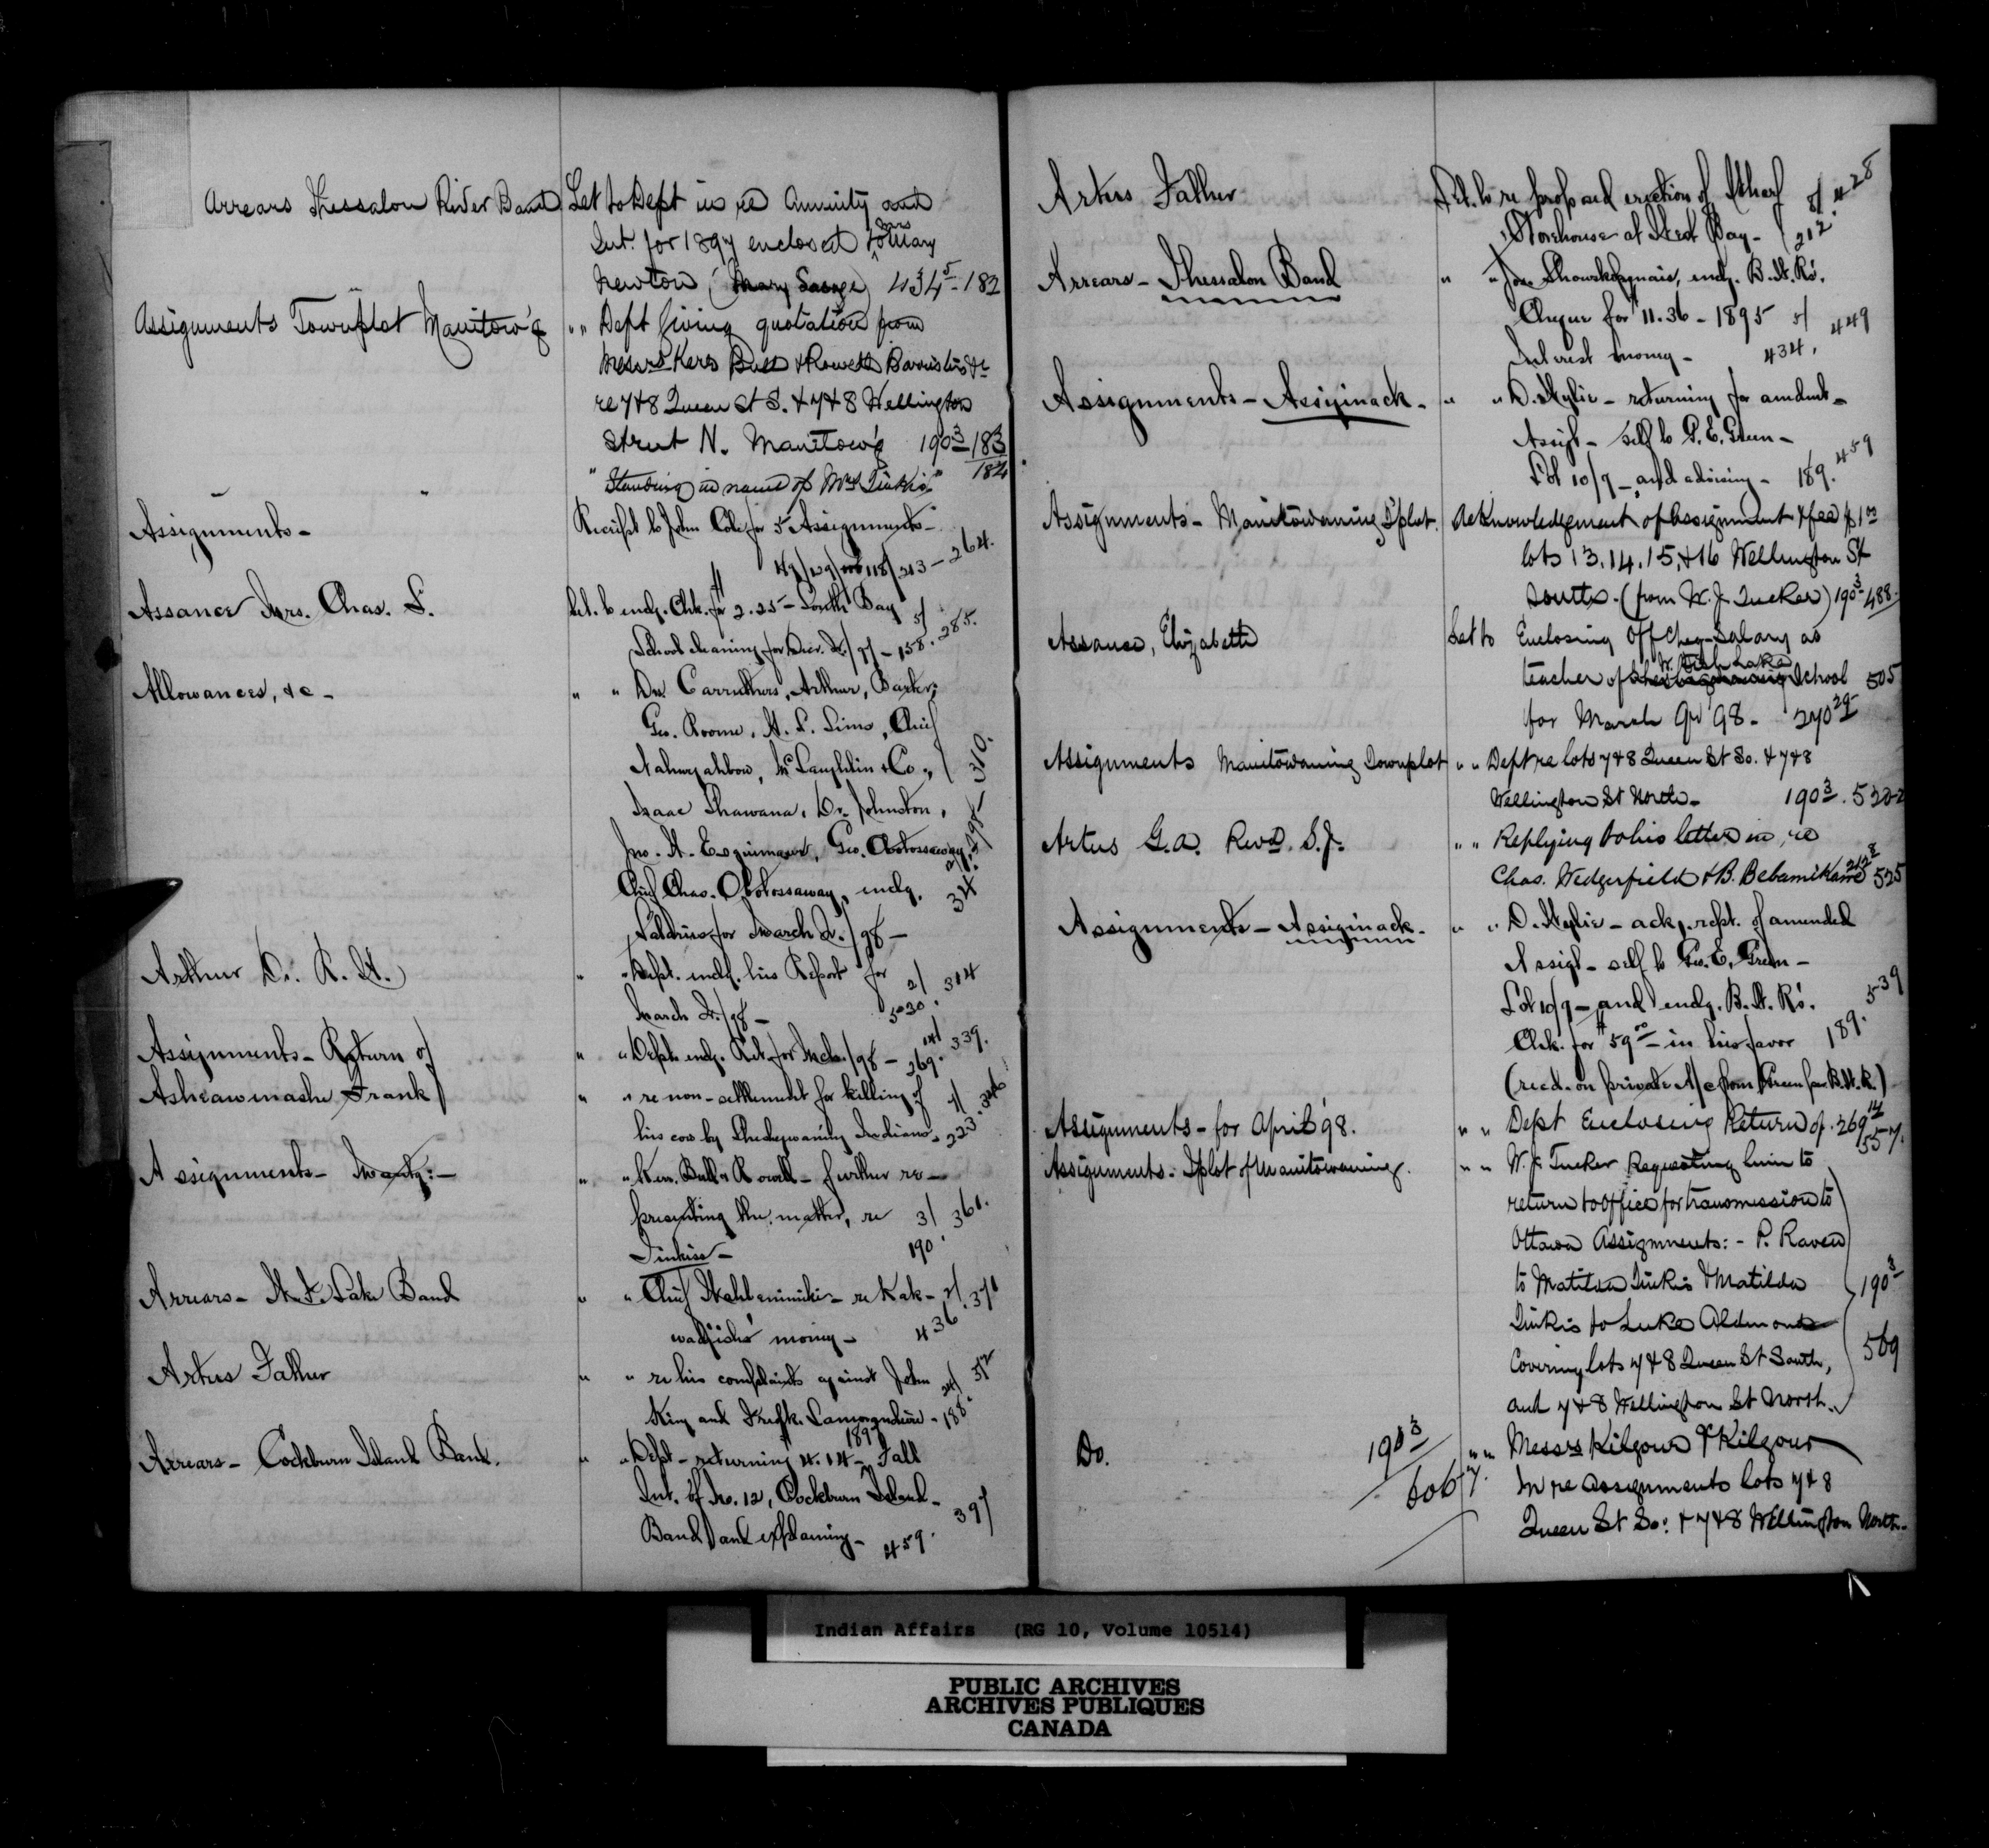 Arrears Thessalon River Band Let to Dept in re Annuity and
Int. for 1897 enclosed to Mary
Newton (Mary Savage) 434 5 - 182
Assignments Townplot Manitow'g " " Dept giving quotation from
Messrs Kerr Bull & Rowell Barristers &c
re 7 & 8 Queen St S. & 7 & 8 Wellington
Street N. Manitow'g 190 3 183
184
"Standing in name of Mrs Tinkis"
Assignments - Receipt to John Cole for 5 Assignments -
213 - 264.
Assance Mrs. Chas. L. Let. to encl. Chk. for $2.25 - South Bay
School cleaning for Decr. Qr./97 - 158. 5/ 285.
Allowances, &c - " " Drs Carruthers, Arthur, Baxter,
Geo. Roome, H. L. Sims, Chief
Nahwegahbow, McLaughlin & Co.,
Isaac Shawana, Dr. Johnston,
Jno. H. Esquimaux, Geo. Obotossaway,
Chief Chas. Obotossaway, encl.
Salaries for March Qr./98 -
310.
Arthur Dr. R. H. " " Dept. encl. his Report for
March Qr./98 - 5030. 2/ 314
Assignments - Return of " " Dept. encl. Ret. for Mch./98 - 269. 14/ 339.
Asheawinashe Frank " " re non-settlement for killing of
his cow by Sheshegwaning Indians - 223. 346
Assignments - Manitg: - " " Kerr, Bull & Rowell - further re-
presenting the matter, re 3/ 361.
Tinkiss - 190.
Arrears - W. F. Lake Band " " Chief - re Kak-
wadjish's money - 436. 2/ 371
Artus Father " " re his complaints against John
King and Fredk. Lamorandiere - 188. 24/
Arrears - Cockburn Island Band. " " Dept - returning $4.14 - 1897 Fall
Int. of No. 12, Cockburn Island
Band and explaining - 459. 397
Artus Father Let. to re proposed erection of Wharf
Storehouse at West Bay - 212. 8/ 428
Arrears - Thessalon Band " " Jos. encl. B. W. R's.
Cheque for $11.36 - 1895
Interest money - 434. 5/ 449
Assignments - Assiginack. " " D. Wylie - returning for amdmt -
Assigt - self to G. E. Green -
Lot 10/9 - and advising - 189. 459
Assignments - Manitowaning T'plot. Acknowledgement of Assignment & fee $1 00
lots 13, 14, 15, & 16 Wellington St
South. (from W. J. Tucker) 190 3 - 488.
Assance, Elizabeth Let to Enclosing Off Cheq - Salary as
W. Fish Lake
teacher of Sheshegwaning School 505
for March Qr 98 - 270 29
Assignments Manitowaning Townplot " " Dept re lots 7 & 8 Queen St So. & 7 & 8
Wellington St North - 190 3. 520-2
Artus G. A. Revd. S.J. " " Replying to his letter in re
Chas. Wedgerfield & B. Bebamikawe 212 8 525
Assignments - Assiginack. " " D. Wylie - ack. rcpt. of amended
Assigt - self to Geo. E. Green -
Lot 10/9 - and encl. B. W. R's.
Chk. for $59 00 - in his favor 189. 539
(recd. on private A/c from Green for B. W. R.)
Assignments - for April 98. " " Dept Enclosing Return of. 269 14
557.
Assignments: T'plot of Manitowaning. " " W. J. Tucker Requesting him to
return to office for transmission to
Ottawa Assignments: - P. Raven
to Matilda Tinkis & Matilda 190 3
Tinkis to Luke Aldmonds
Covering lots 7 & 8 Queen St South, 569
and 7 & 8 Wellington St North.
Do. 190 3 " " Messrs Kilgour & Kilgour
606/7. In re Assignments lots 7 & 8
Queen St So: & 7 & 8 Wellington North -
Indian Affairs (RG 10, Volume 10514)
PUBLIC ARCHIVES
ARCHIVES PUBLIQUES
CANADA